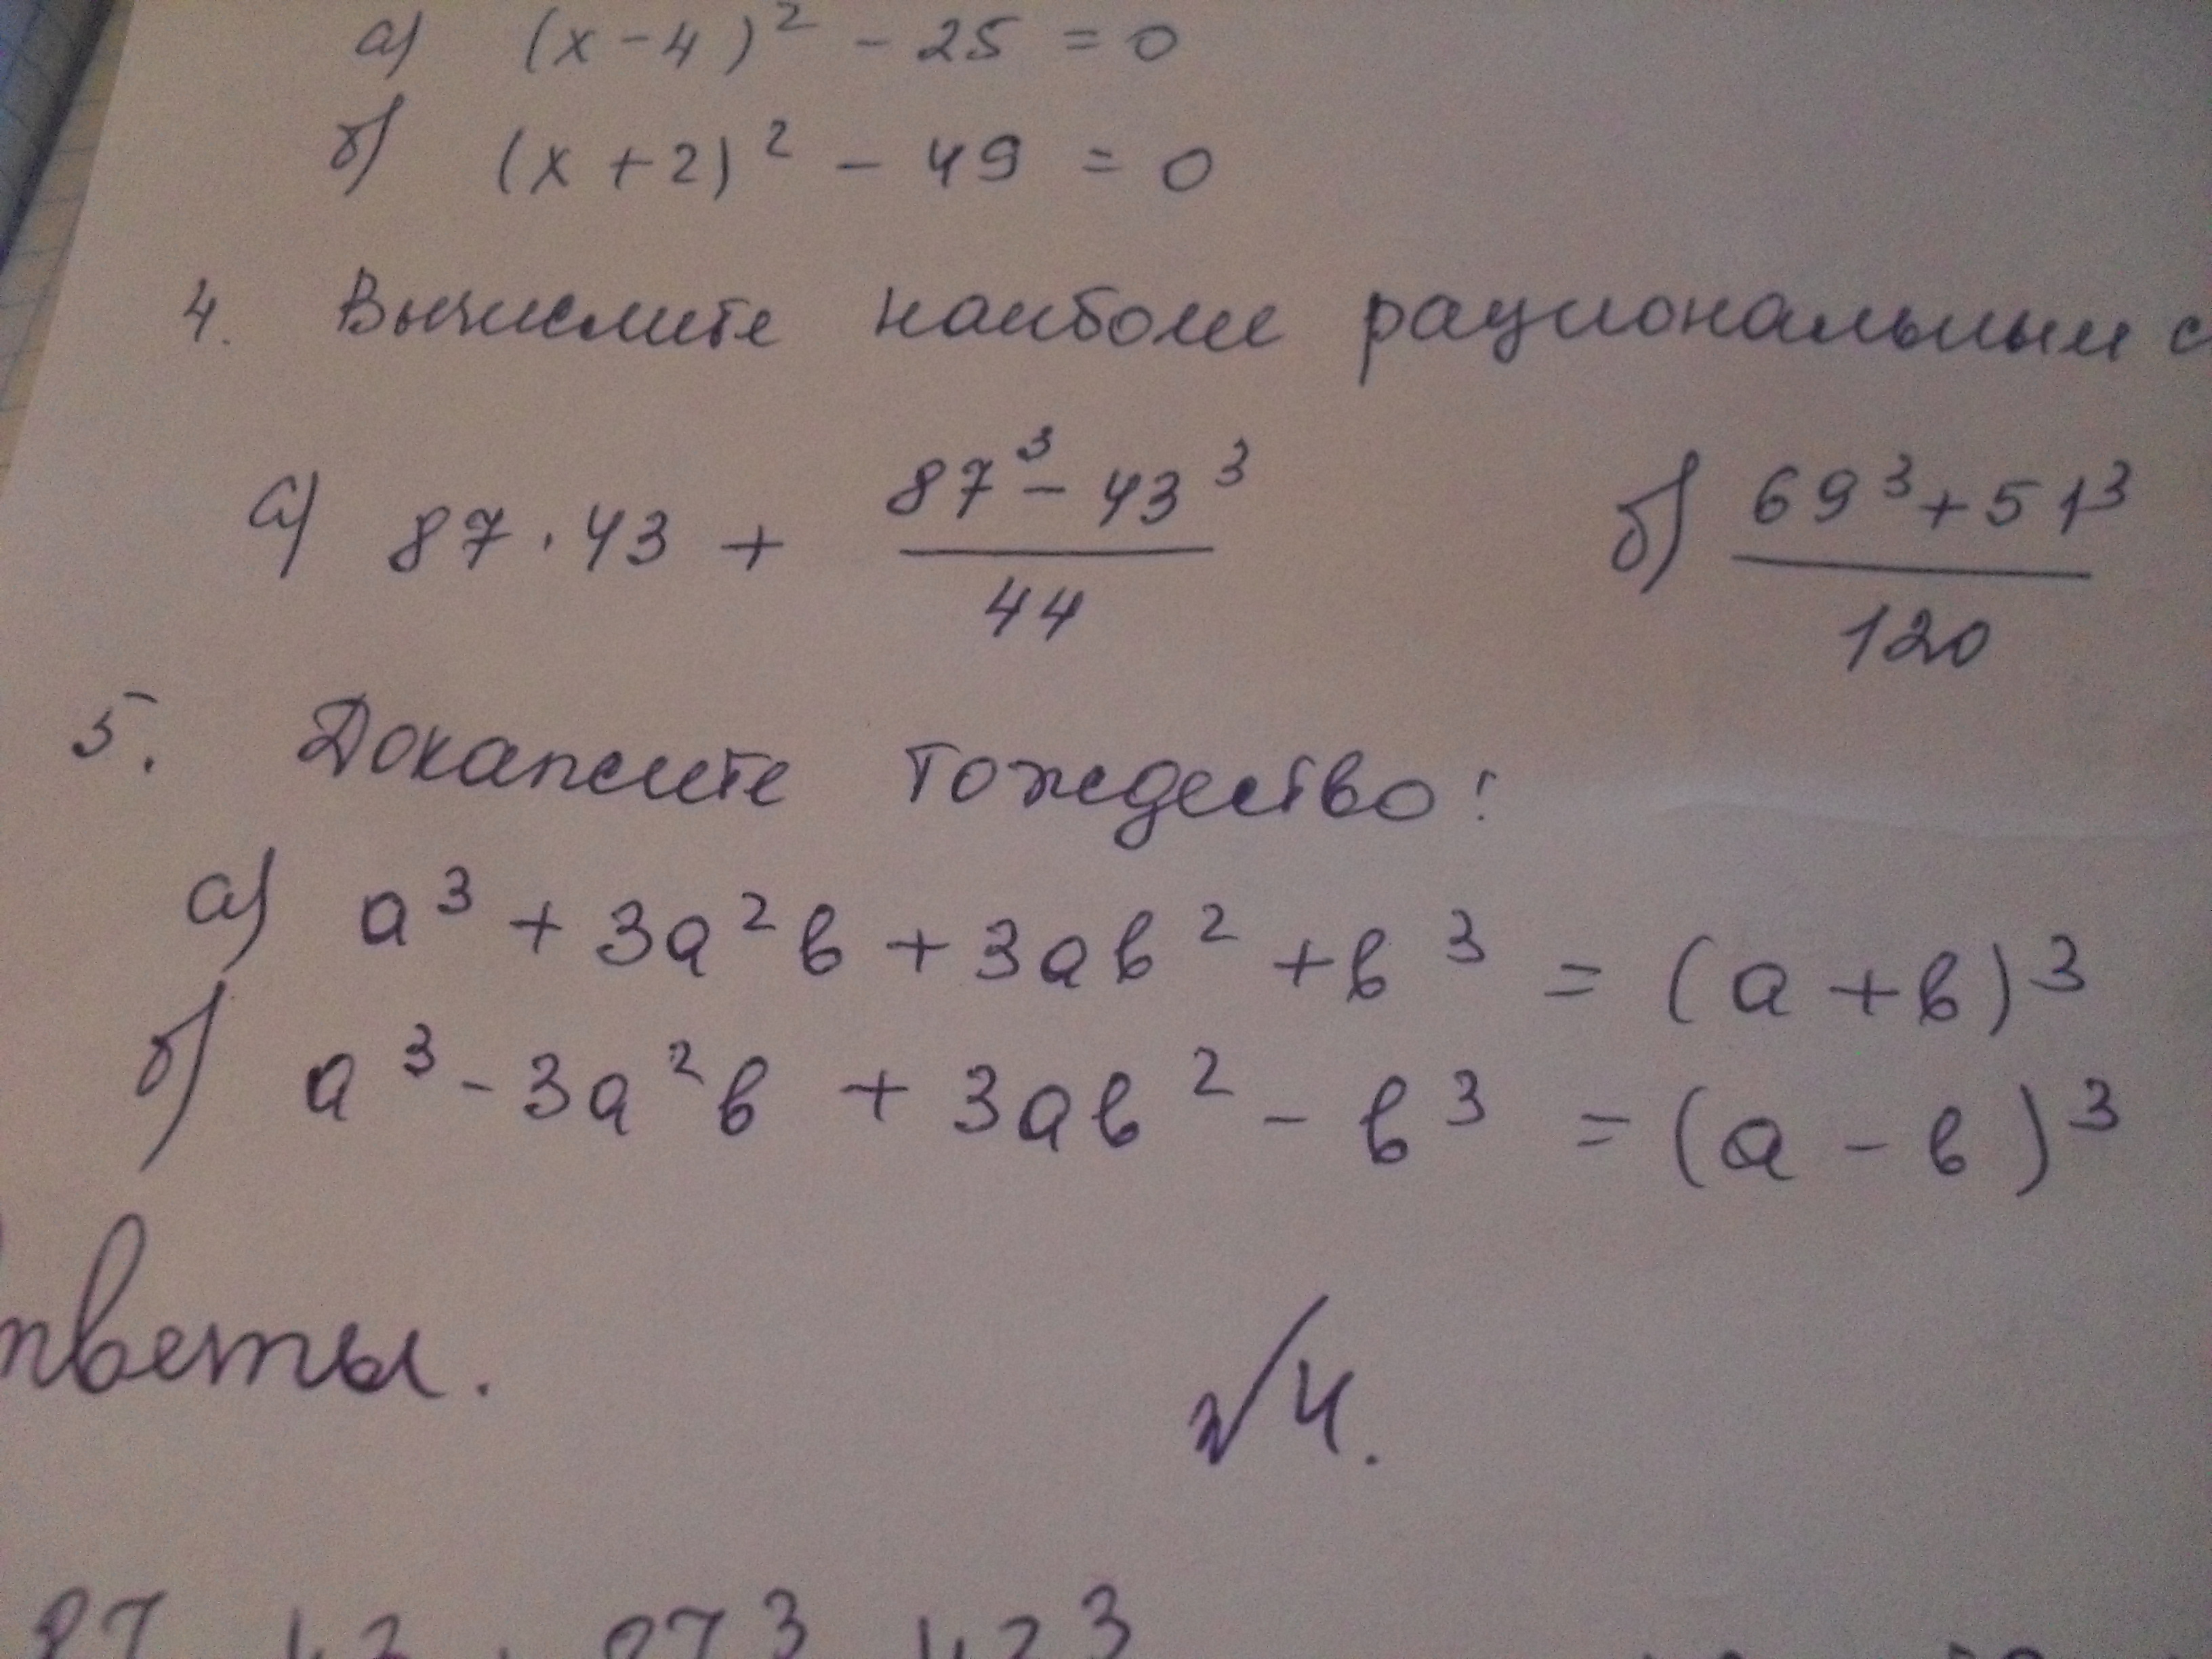 а) (x-4)² - 25 = 0
б) (x+2)² - 49 = 0
4. Вычислите наиболее рациональным с
а) 87·43 + (87³ - 43³)/44 б) (69³ + 51³)/120
5. Докажите тождество:
а) a³ + 3a²b + 3ab² + b³ = (a+b)³
б) a³ - 3a²b + 3ab² - b³ = (a-b)³
тветы. №4.
87 43 87³ 43³